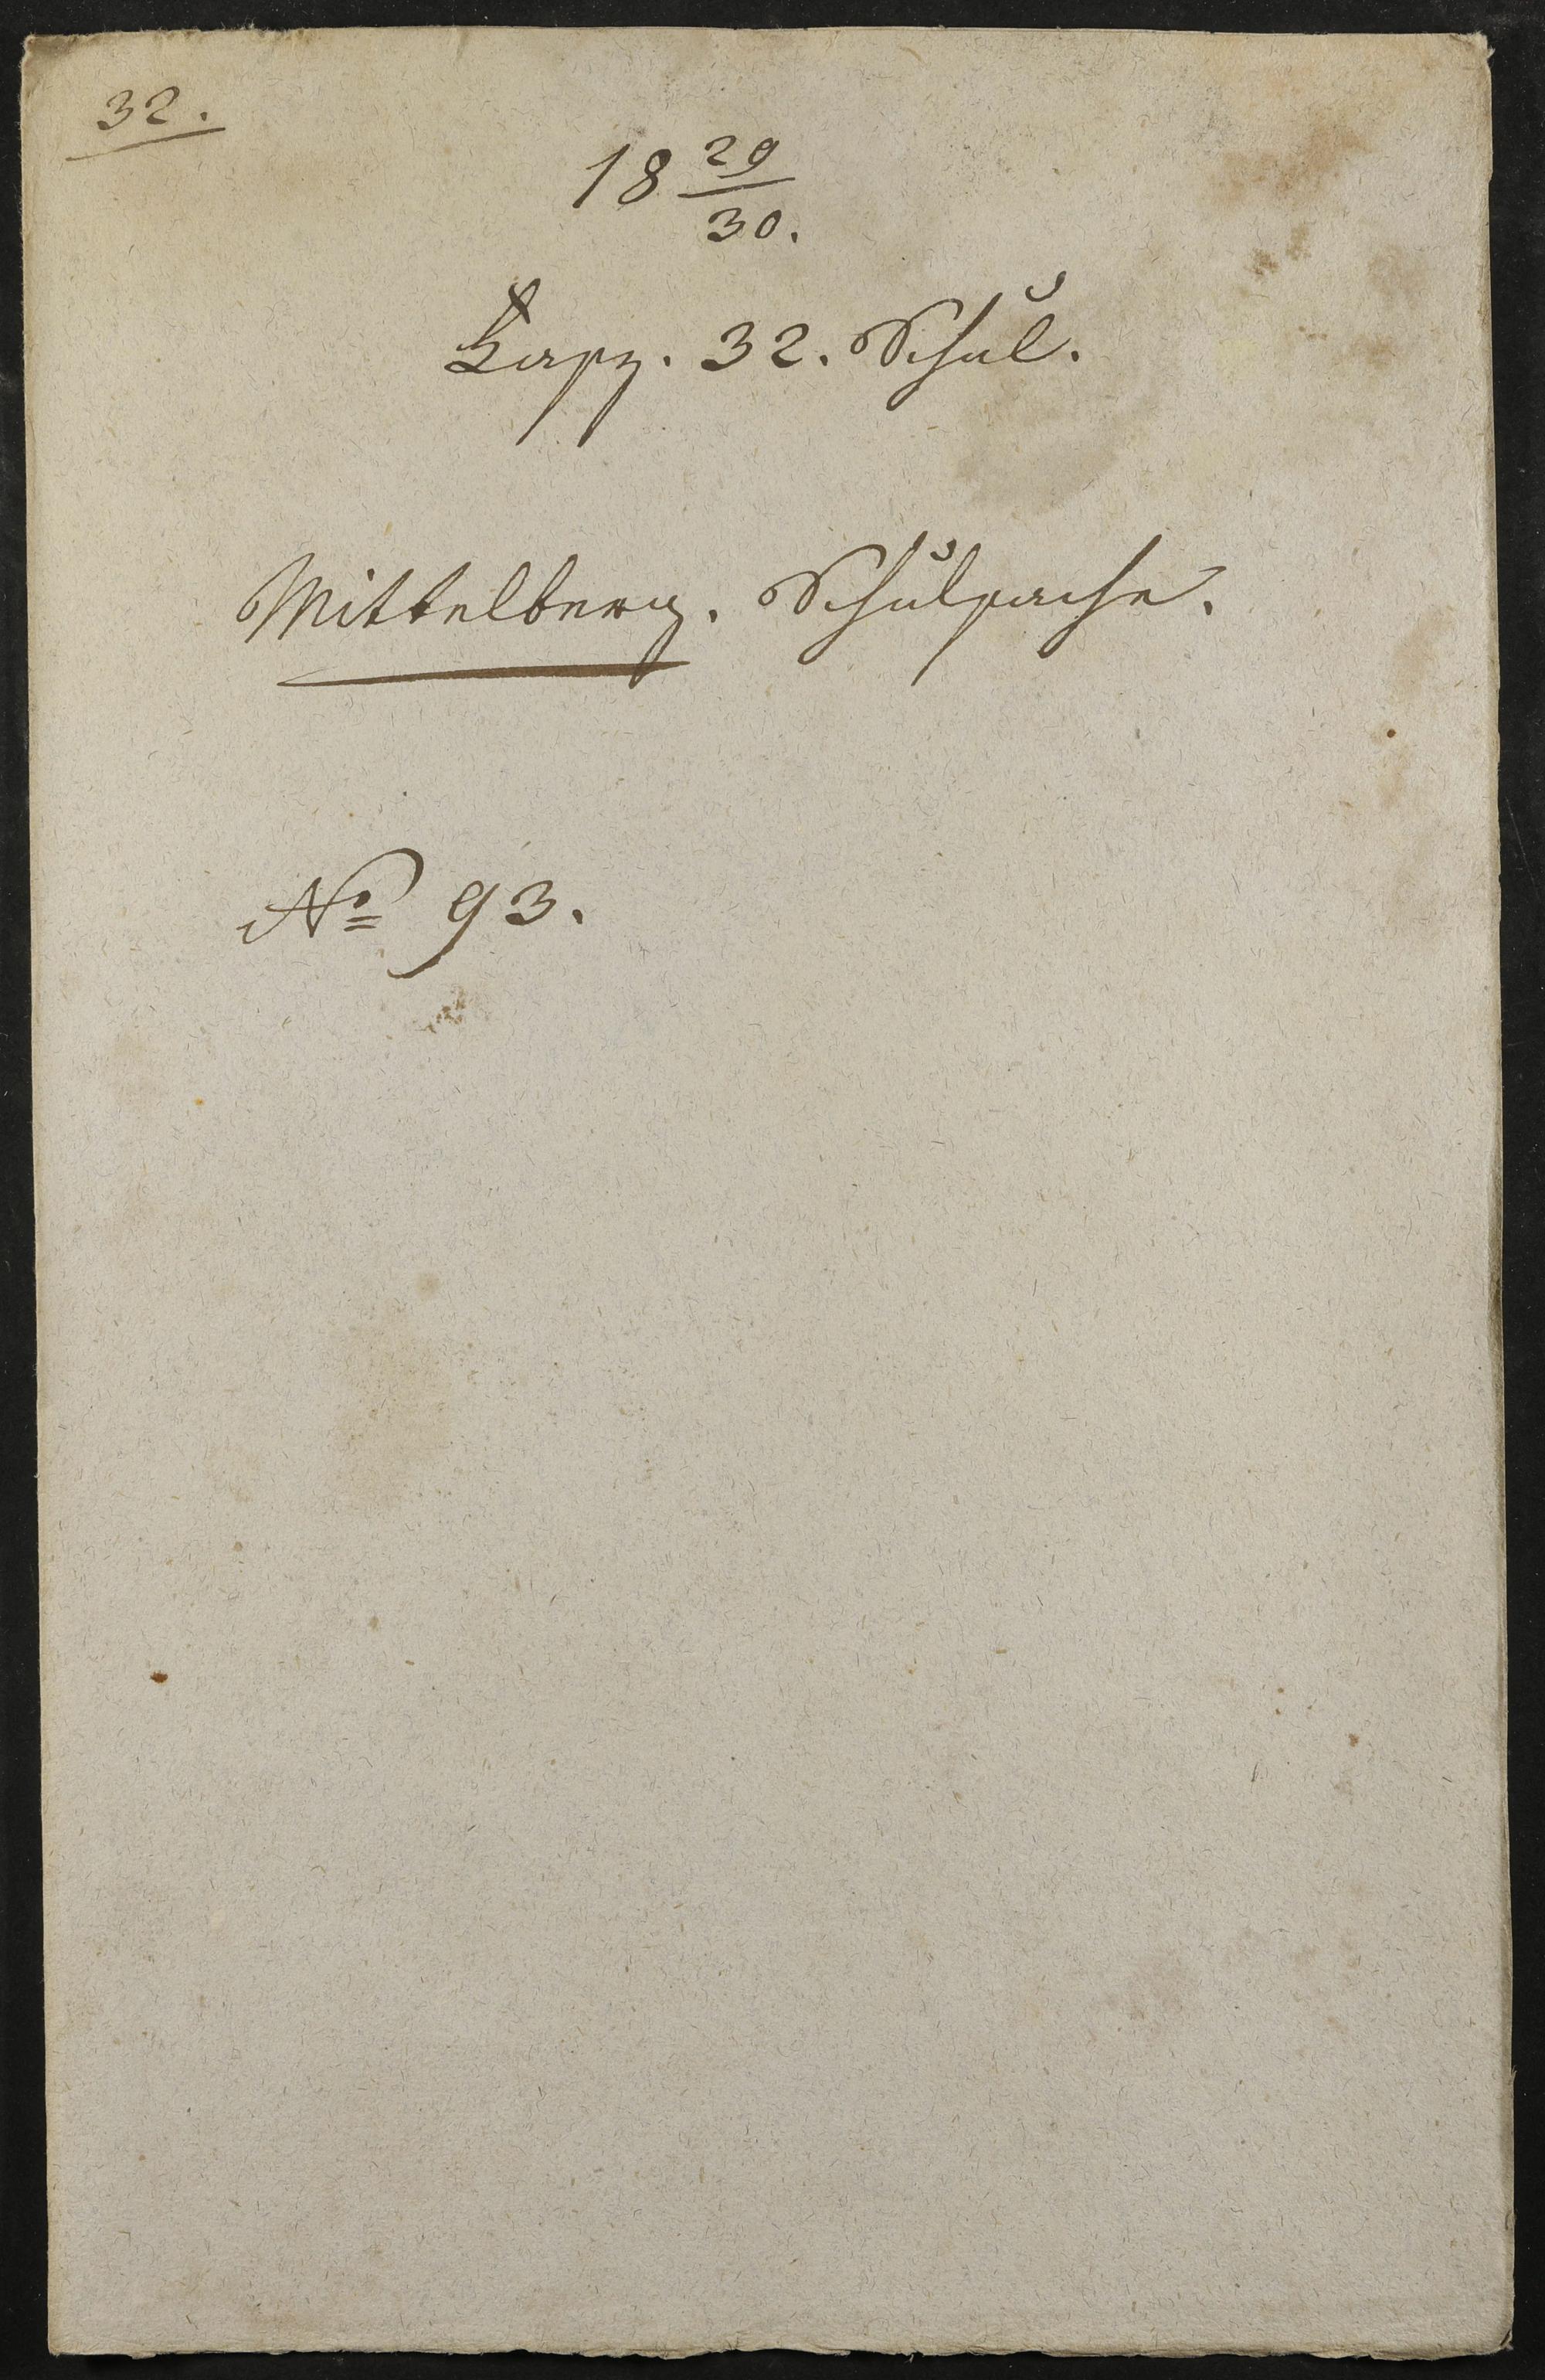 32.
18 29/30.
Fasz. 32. Schul.
Mittelberg. Schulsache.
No 93.